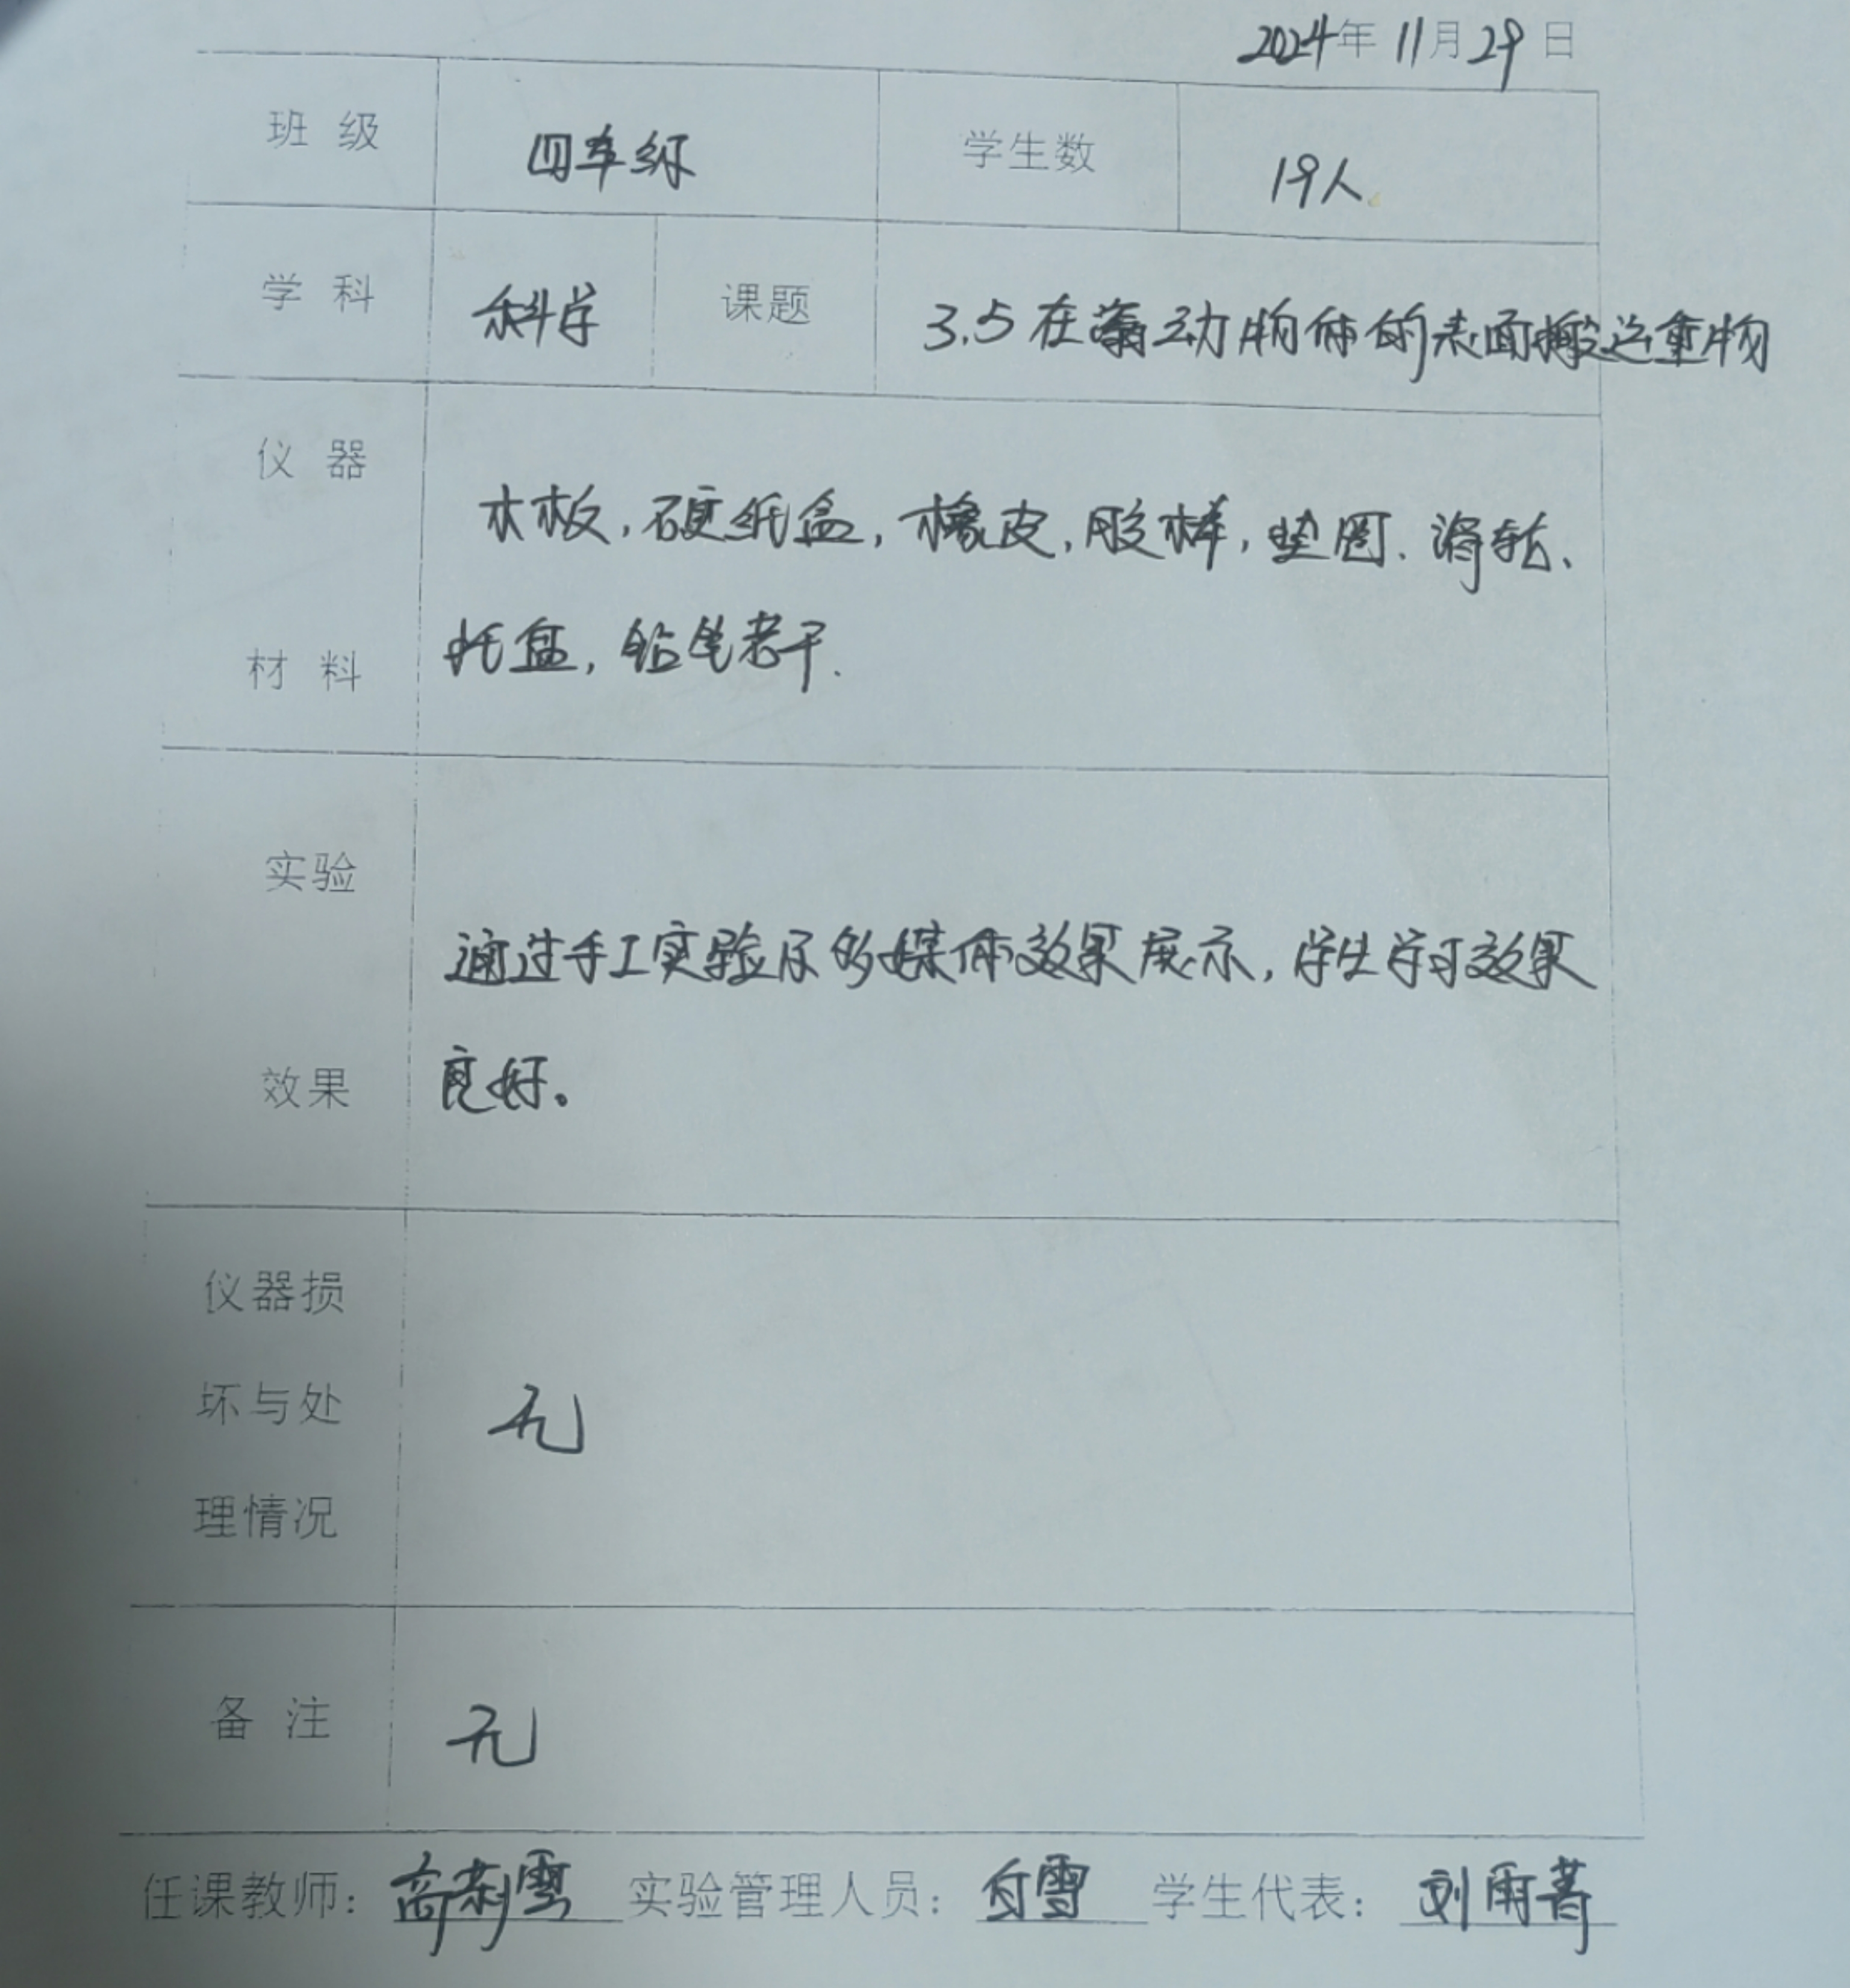 2024年 11月29日
班 级 四年级 学生数 19人
学 科 科学 课题 3.5在运动物体的表面搬运重物
仪 器
木板,硬纸盒,橡皮,胶棒,垫圈、滑轮、
材 料 托盘,铅笔若干.
实验
通过手工实验及多媒体效果展示,学生学习效果
效果 良好。
仪器损
坏与处 无
理情况
备 注 无
任课教师: 高荆雪 实验管理人员: 白雪 学生代表: 刘雨菁